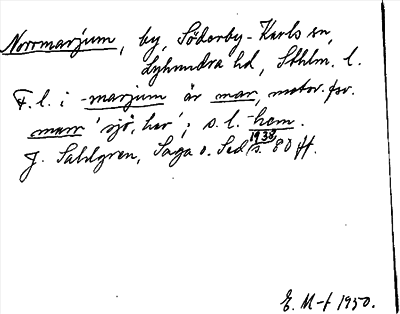 Norrmarjum, by, Söderby-Karls sn,
Lyhundra hd, Sthlm. l.
F. l. i -marjum är mar, motsv. fsv.
marr 'sjö, hav'; s. l. -hem.
J. Sahlgren, Saga o. Sed 1938, s. 80 ff.
E. M-t 1950.